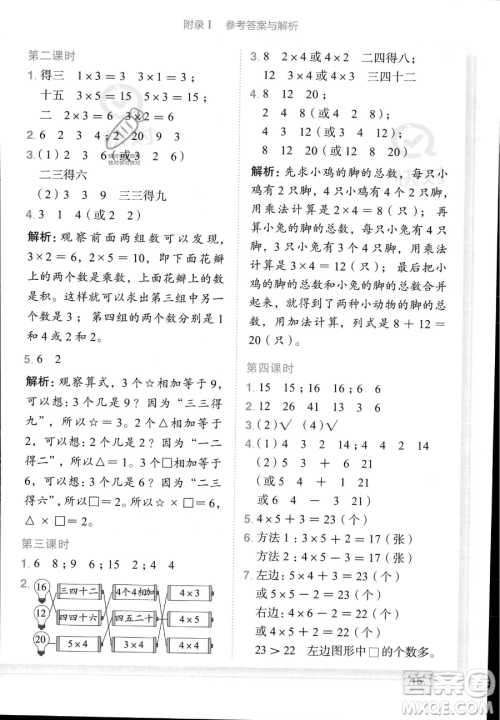 附录Ⅰ 参考答案与解析
第二课时
1. 得三 1×3=3 3×1=3
十五 3×5=15 5×3=15
二 2×3=6 3×2=6
2. 6 2 4
3. (1) 2 3 6 (或 3 2 6)
二三得六
(2) 3 3 9 三三得九
4. 3 1 4 (或 2 2)
解析: 观察前面两组数可以发现,
3×2=6, 1×5=5, 即下面花瓣
上的两个数是乘数, 上面花瓣上的
数是积。这样就可求出第三组中的
数是3; 第四组的两个数可能是1
和4或2和2。
5. 6 2
解析: 观察算式, 3个☆相加等于9,
可以想: 3个几是9? 因为“三三得
九”, 所以☆=3; 2个□相加等于2,
可以想: 2个几是2? 因为“一二
得二”, 所以□=1; 3个△相加等于
6, 可以想: 3个几是6? 因为“二三
得六”, 所以△=2。所以☆×△=6,
△×□=2。
第三课时
1. 6 6 9 15; 2; 4
2. 16 三四十二 4个4相加 4×3
12 四四十六 四五二十 4×4
20 5×4 3×4 4×5
3. 8 2 4(或 4 2) 二四得八
12 3 4(或 4 3) 三四十二
4. 8 12 20;
2 4 8 4 3 12
8 12 20
解析: 先求出小鸡的脚的总数, 每只小
鸡有2只脚, 4只小鸡有4个2只脚,
用乘法计算是2×4=8(只); 再
算出小兔的脚的总数, 每只小兔有4
只脚, 3只小兔有3个4只脚, 用乘
法计算是4×3=12(只); 然后把小
鸡的脚的总数和小兔的脚的总数加起
来就得到了两种小动物的脚的总
数, 用加法计算, 列式是8+12=
20(只)。
第四课时
1. 15 15; 16; 3 6 6
2. 12 26 41 8 12
3. (2)√ (2)√
4. 4 4 5 21
(或 5 4 1 21)
3 6 3 21
(或 6 3 3 21)
5. 4×5+3=23(个)
6. 方法1: 3×5+2=17(张)
方法2: 3×6-1=17(张)
7. 左边: 4×5+3=23(个)
或 4×6-1=23(个)
右边: 4×5+2=22(个)
或 4×6-2=22(个)
23>22 左边图形中□的个数多。